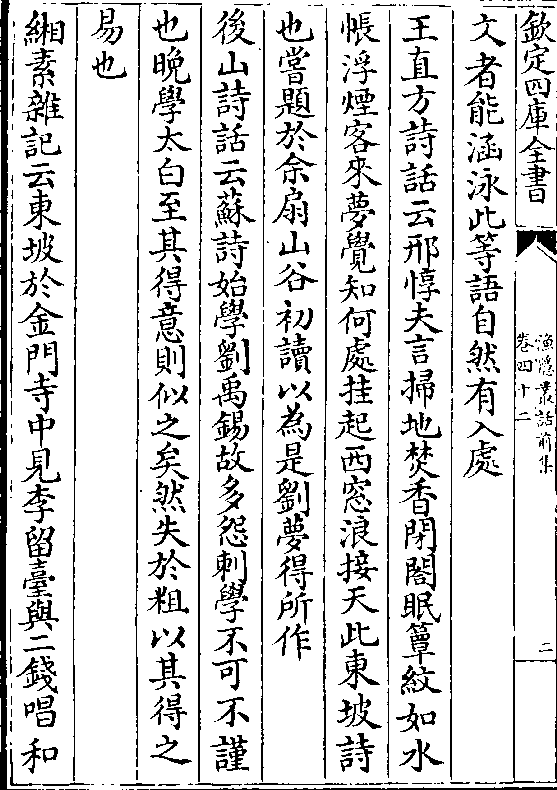 欽定四庫全書
漁隱叢話前集
卷四十二
二
文者能涵泳此等語自然有入處
王直方詩話云邢惇夫言掃地焚香閉閤眠簟紋如水
帳浮煙客來夢覺知何處挂起西窓浪接天此東坡詩
也嘗題於余扇山谷初讀以為是劉夢得所作
後山詩話云蘇詩始學劉禹錫故多怨刺學不可不謹
也晚學太白至其得意則似之矣然失於粗以其得之
易也
緗素雜記云東坡於金門寺中見李留臺與二錢唱和